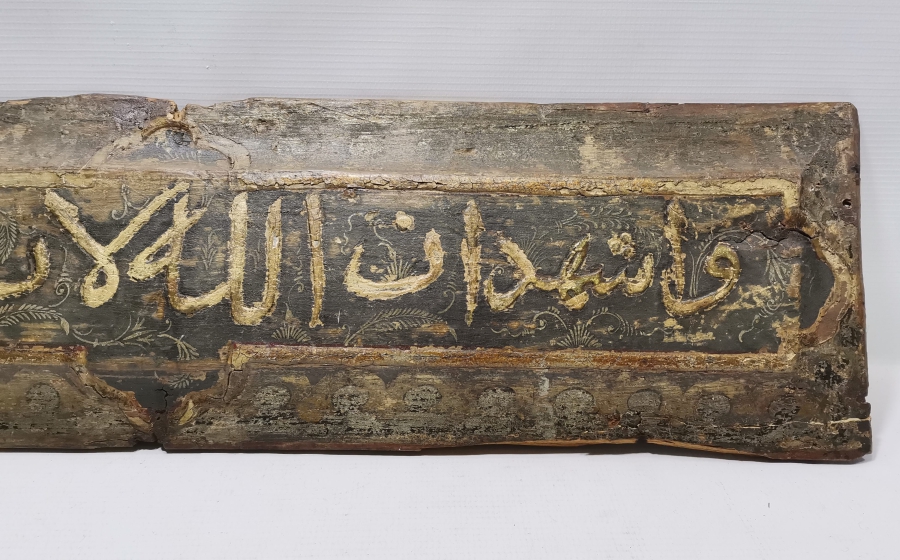 واشهد ان الله لا